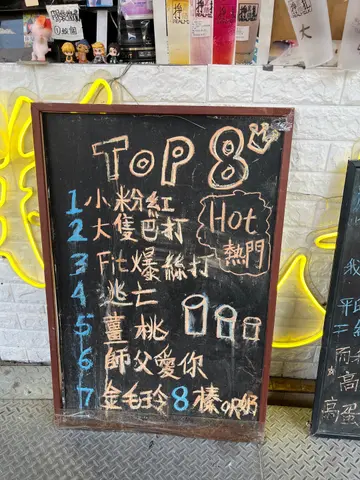 TOP 8
1 小粉紅
2 大隻巴打
Hot
熱門
3 Fit爆絲打
4 逃亡
5 薑桃
6 師父愛你
7 金毛玲 8 榛の奶
我
平
二
而
高
高蛋